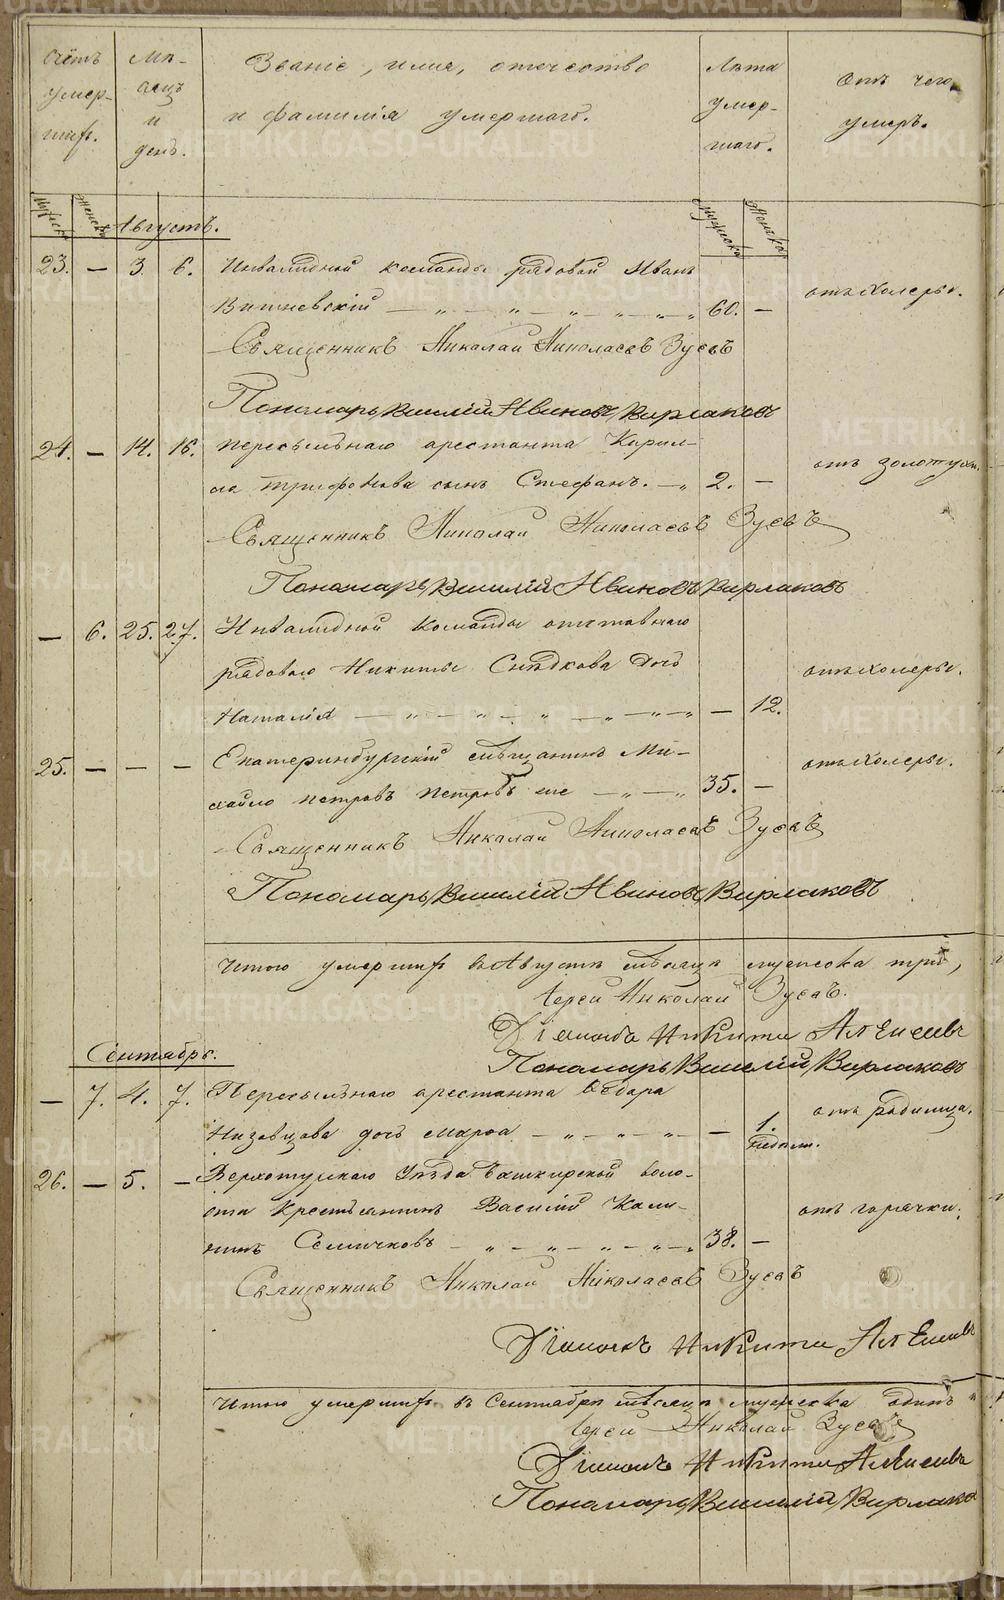 Счетъ умер-шихъ.
Мѣ-сяцъ и день.
Званіе, имя, отечество
и фамилія умершаго.
Лѣта умер-шаго.
Отъ чего умеръ.
Мужска Женска
Августъ.
Мужска Женска
23. — 3. 6. Инвалидной команды рядовой Иванъ
отъ холеры.
Вишневскій — „ — „ — „ — „ — „ 60. —
Священникъ Николай Николаевъ Зуевъ
Пономарь Василій Ивановъ Бирлаковъ
24. — 14. 16. Пересыльнаго арестанта Кирил-
отъ золотухи.
ла Трифонова сынъ Стефанъ. — „ 2. —
Священникъ Николай Николаевъ Зуевъ
Пономарь Василій Ивановъ Бирлаковъ
— 6. 25. 27. Инвалидной команды отставнаго
рядоваго Никиты Сѣдкова дочь
отъ холеры.
Наталія — „ — „ — „ — „ — „ — 12.
25. — — — Екатеринбургскій мѣщанинъ Ми-
отъ холеры.
хайло Петровъ Петровъ же — „ — „ 35. —
Священникъ Николай Николаевъ Зуевъ
Пономарь Василій Ивановъ Бирлаковъ
Итого умершихъ въ Августѣ мѣсяцѣ мужска три,
Іерей Николай Зуевъ.
Діаконъ Никита Алексеевъ
Пономарь Василій Бирлаковъ
Сентябрь.
— 7. 4. 7. Пересыльнаго арестанта Ѳедора
отъ родимца.
Низовцова дочь Марѳа — „ — „ — „ — 1. недѣл.
26. — 5. — Верхотурскаго Уѣзда Башкирской воло-
сти Крестьянинъ Василій Кали-
отъ горячки.
нинъ Семичковъ — „ — „ — „ — „ 38. —
Священникъ Николай Николаевъ Зуевъ
Діаконъ Никита Алексеевъ
Итого умершихъ въ Сентябрѣ мѣсяцѣ мужска одинъ
Іерей Николай Зуевъ
Діаконъ Никита Алексеевъ
Пономарь Василій Бирлаков
METRIKI.GASO-URAL.RU